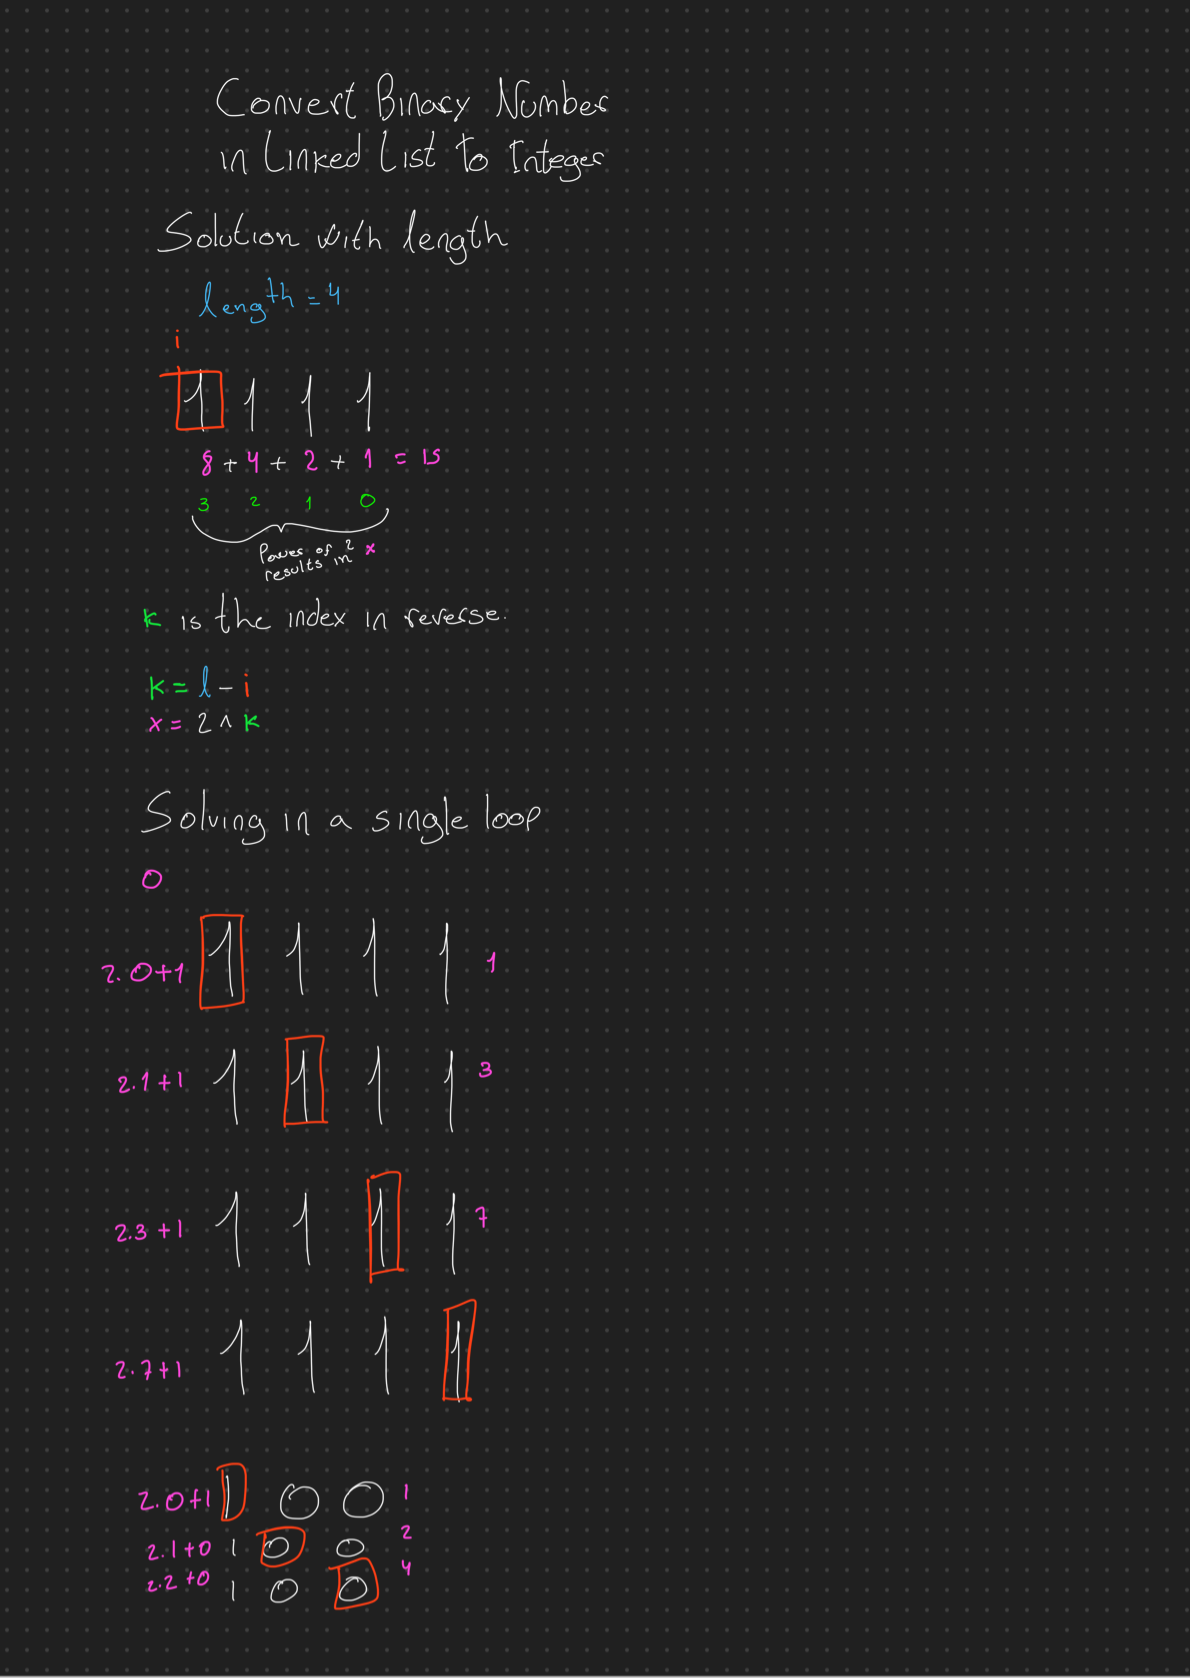 Convert Binary Number
in Linked List to Integer
Solution with length
length = 4
i
1 1 1 1
8 + 4 + 2 + 1 = 15
3 2 1 0
Power of 2
results in x
k is the index in reverse.
k = l - i
x = 2 ^ k
Solving in a single loop
0
2.0+1 1 1 1 1 1
2.1+1 1 1 1 1 3
2.3+1 1 1 1 1 7
2.7+1 1 1 1 1
2.0+1 1 0 0 1
2.1+0 1 0 0 2
2.2+0 1 0 0 4